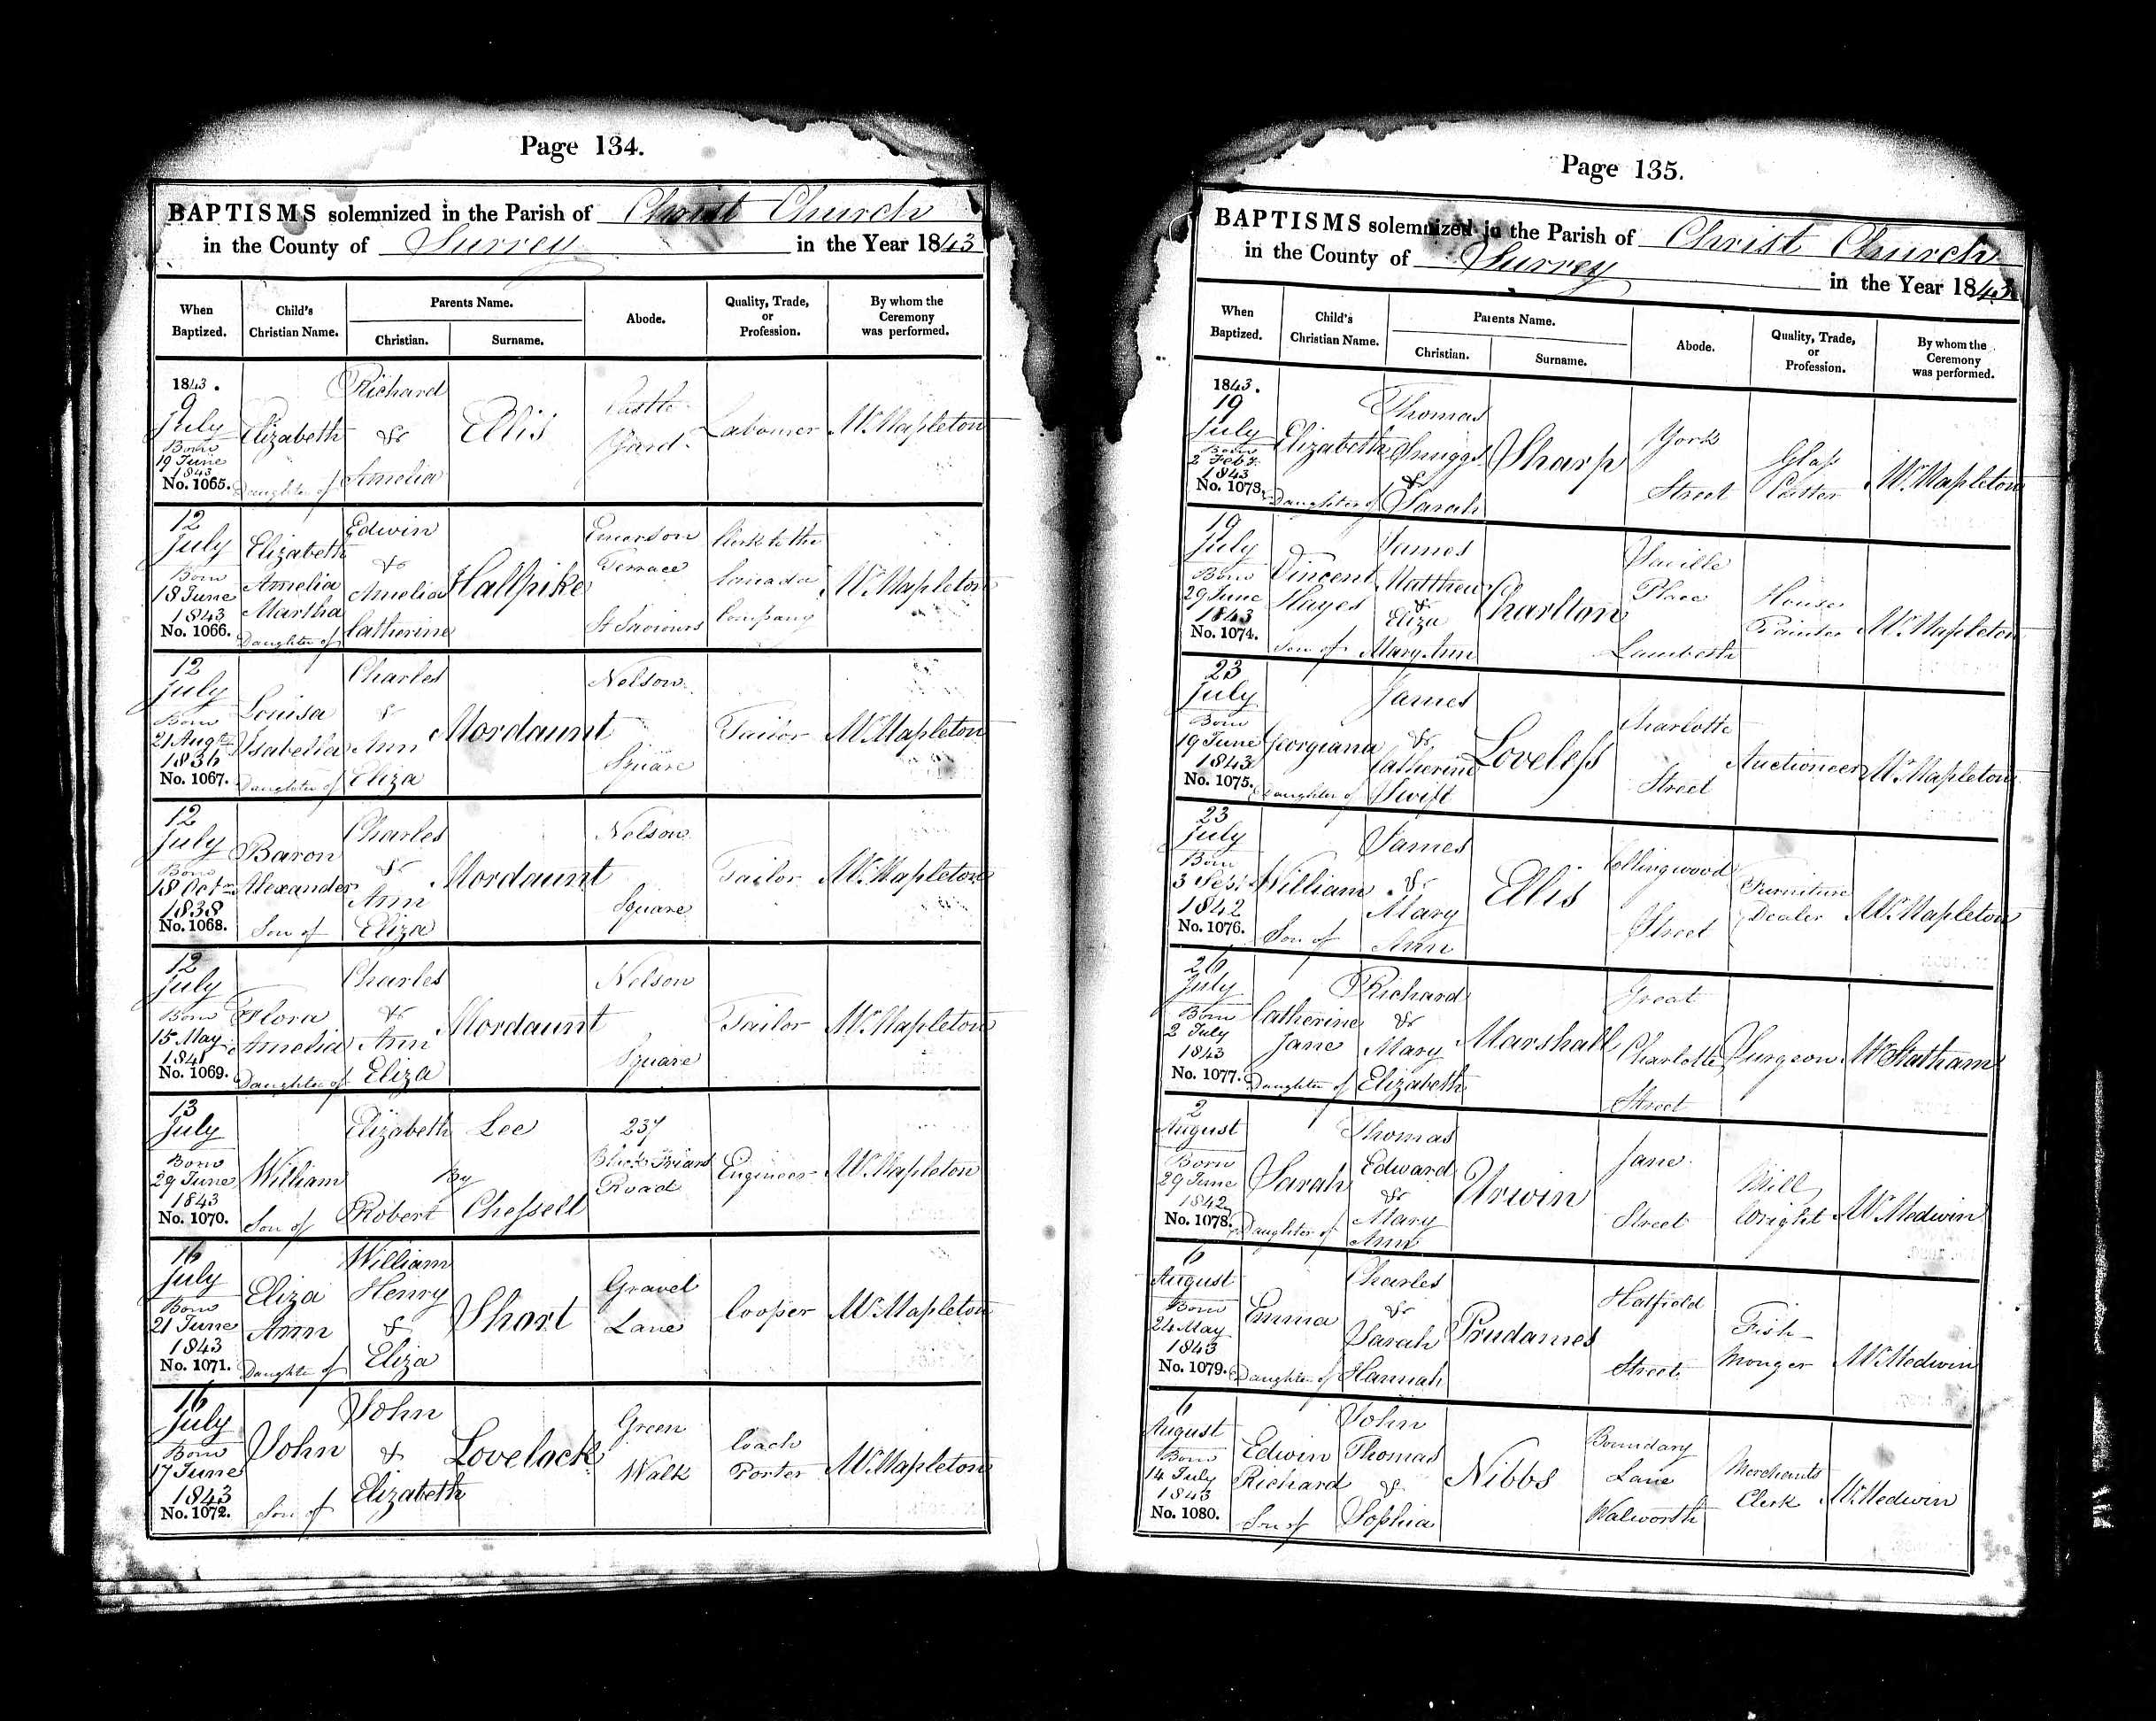 Page 134.
BAPTISMS solemnized in the Parish of Christ Church
in the County of Surrey in the Year 1843
When Baptized.
Child's Christian Name.
Parents Name.
Christian.
Surname.
Abode.
Quality, Trade, or Profession.
By whom the Ceremony was performed.
1843.
9
July
Born
19 June
1843
No. 1065.
Elizabeth
Daughter of
Richard
&
Amelia
Ellis
Castle
Yard
Labourer
Mr. Mapleton
12
July
Born
18 June
1843
No. 1066.
Elizabeth
Amelia
Martha
Daughter of
Edwin
&
Amelia
Catherine
Hallpike
Emerson
Terrace
St Saviours
Clerk to the
Canada
Company
Mr. Mapleton
12
July
Born
21 Augt
1836
No. 1067.
Louisa
Isabella
Daughter of
Charles
&
Ann
Eliza
Mordaunt
Nelson
Square
Tailor
Mr. Mapleton
12
July
Born
18 Octr
1838
No. 1068.
Baron
Alexander
Son of
Charles
&
Ann
Eliza
Mordaunt
Nelson
Square
Tailor
Mr. Mapleton
12
July
Born
15 May
1841
No. 1069.
Flora
Amelia
Daughter of
Charles
&
Ann
Eliza
Mordaunt
Nelson
Square
Tailor
Mr. Mapleton
13
July
Born
29 June
1843
No. 1070.
William
Son of
Elizabeth Lee
By
Robert Chessell
237
Black Friars
Road
Engineer
Mr. Mapleton
16
July
Born
21 June
1843
No. 1071.
Eliza
Ann
Daughter of
William
Henry
&
Eliza
Short
Gravel
Lane
Cooper
Mr. Mapleton
16
July
Born
17 June
1843
No. 1072.
John
Son of
John
&
Elizabeth
Lovelock
Green
Walk
Coach
Porter
Mr. Mapleton
Page 135.
BAPTISMS solemnized in the Parish of Christ Church
in the County of Surrey in the Year 1843
When Baptized.
Child's Christian Name.
Parents Name.
Christian.
Surname.
Abode.
Quality, Trade, or Profession.
By whom the Ceremony was performed.
1843.
19
July
Born
2 Feby
1843
No. 1073.
Elizabeth
Daughter of
Thomas
Snuggs
&
Sarah
Sharp
York
Street
Glass
Caster
Mr. Mapleton
19
July
Born
29 June
1843
No. 1074.
Vincent
Hayes
Son of
James
Matthew
&
Eliza
Mary Ann
Charlton
Saville
Place
Lambeth
House
Painter
Mr. Mapleton
23
July
Born
19 June
1843
No. 1075.
Georgiana
Daughter of
James
&
Catherine
Swift
Loveless
Charlotte
Street
Auctioneer
Mr. Mapleton
23
July
Born
3 Sept
1842
No. 1076.
William
Son of
James
&
Mary
Ann
Ellis
Collingwood
Street
Furniture
Dealer
Mr. Mapleton
26
July
Born
2 July
1843
No. 1077.
Catherine
Jane
Daughter of
Richard
&
Mary
Elizabeth
Marshall
Great
Charlotte
Street
Surgeon
Mr. Statham
2
August
Born
29 June
1842
No. 1078.
Sarah
Daughter of
Thomas
Edward
&
Mary
Ann
Urwin
Jane
Street
Mill
Wright
Mr. Medwin
6
August
Born
24 May
1843
No. 1079.
Emma
Daughter of
Charles
&
Sarah
Hannah
Prudames
Hatfield
Street
Fish
Monger
Mr. Medwin
6
August
Born
14 July
1843
No. 1080.
Edwin
Richard
Son of
John
Thomas
&
Sophia
Nibbs
Boundary
Lane
Walworth
Merchants
Clerk
Mr. Medwin